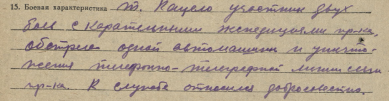 15. Боевая характеристика т. Кацело участник двух
боев с карательными экспедициями пр-ка,
обстрела одной автомашины и уничто-
жения телефонно-телеграфной линии связи
пр-ка. К службе относился добросовестно.